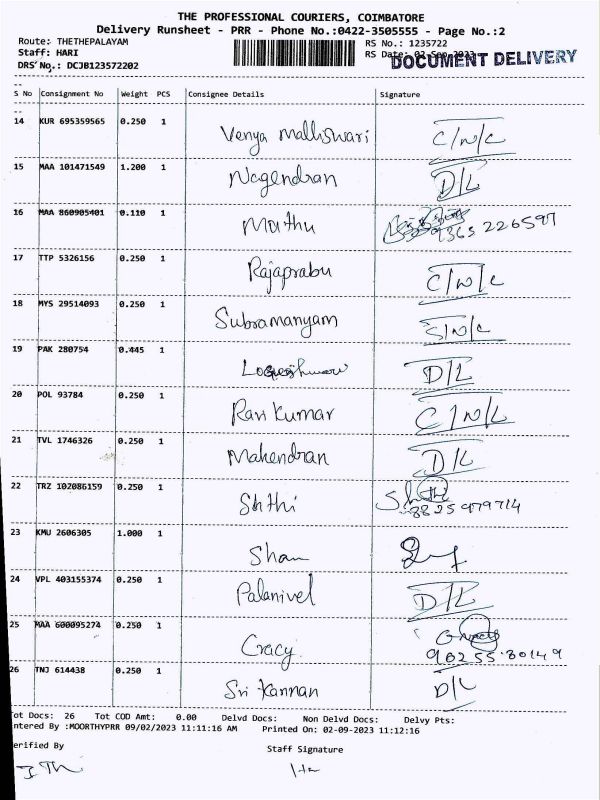 THE PROFESSIONAL COURIERS, COIMBATORE
Delivery Runsheet - PRR - Phone No.:0422-3505555 - Page No.:2
Route: THETHEPALAYAM RS No.: 1235722
Staff: HARI RS Date: 02-Sep-2023
DRS No.: DCJB123572202 DOCUMENT DELIVERY
S No Consignment No Weight PCS Consignee Details Signature
14 KUR 695359565 0.250 1 Venya Malliswari C/N/L
15 MAA 101471549 1.200 1 Nagendran D/L
16 MAA 860905401 0.110 1 Muthu 9365 226597
17 TTP 5326156 0.250 1 Rajaprabu C/N/L
18 MYS 29514093 0.250 1 Subramanyam S/N/L
19 PAK 280754 0.445 1 D/L
20 POL 93784 0.250 1 Ravi Kumar C/N/L
21 TVL 1746326 0.250 1 Mahendran D/L
22 TRZ 102086159 0.250 1 Shthi 8825979714
23 KMU 2606305 1.000 1 Sham
24 VPL 403155374 0.250 1 Palanivel D/L
25 MAA 600095274 0.250 1 Cracy 90255 80149
26 TNJ 614438 0.250 1 Sri Kannan D/L
ot Docs: 26 Tot COD Amt: 0.00 Delvd Docs: Non Delvd Docs: Delvy Pts:
ntered By :MOORTHYPRR 09/02/2023 11:11:16 AM Printed On: 02-09-2023 11:12:16
erified By Staff Signature